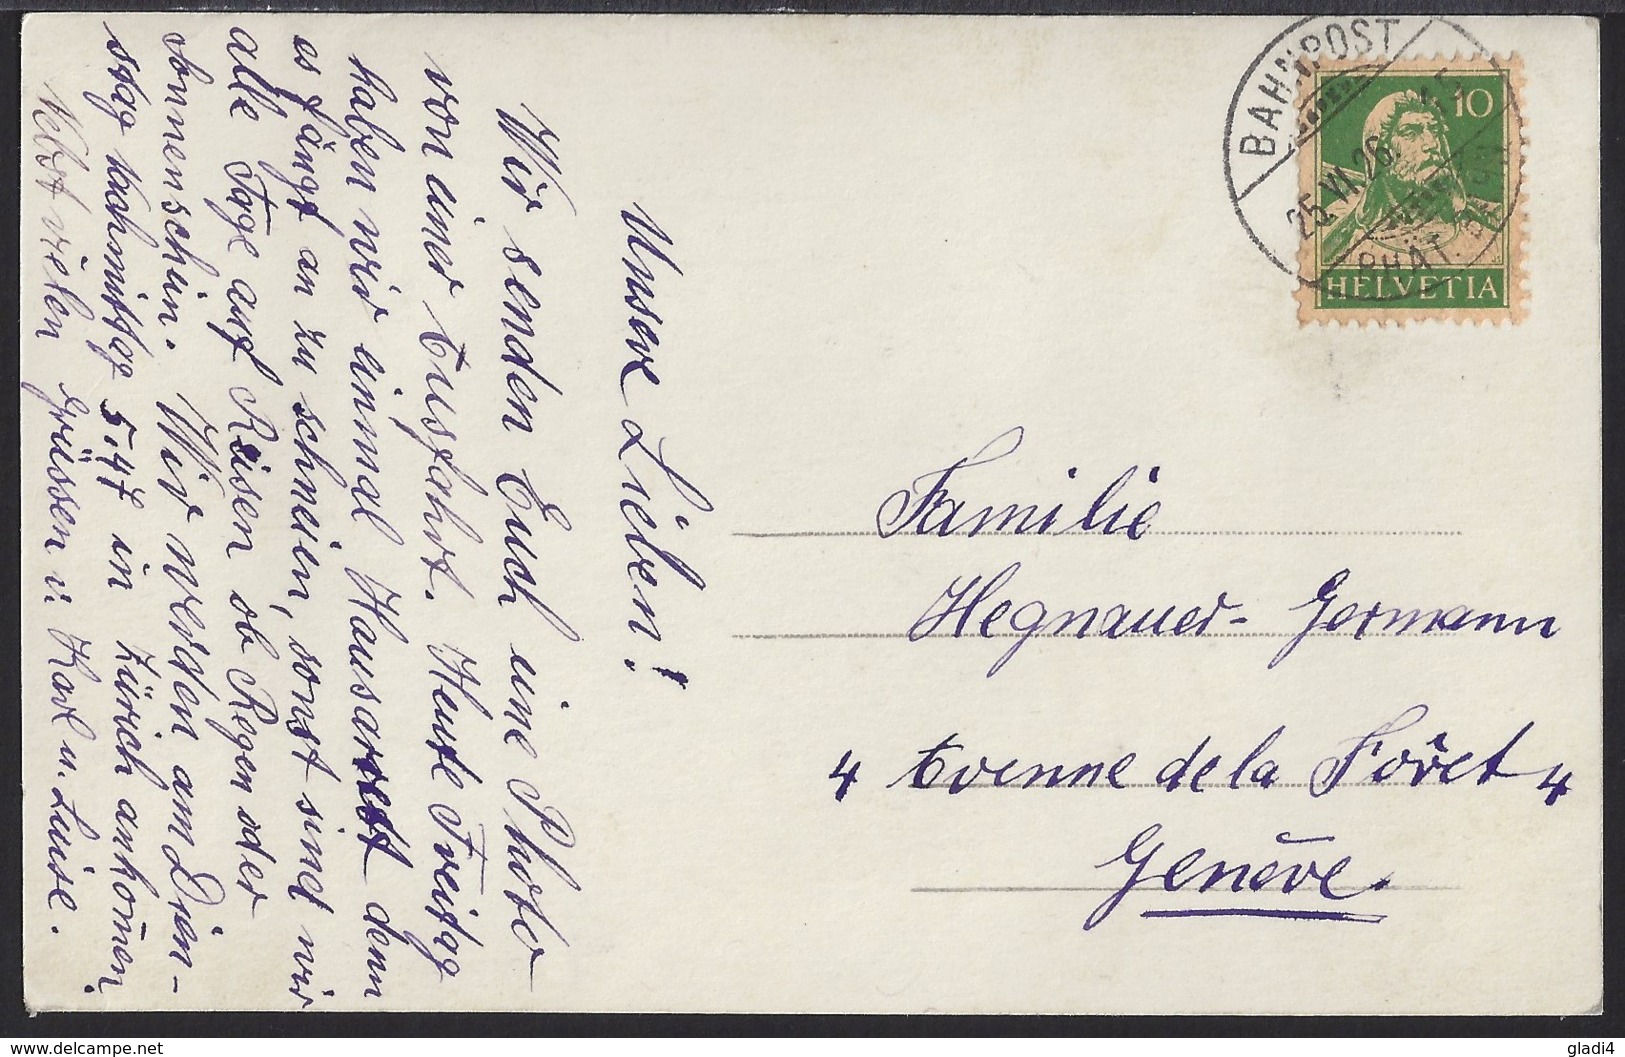 Unsere Lieben!
Wir senden Euch eine Photo
von einer Ausfahrt. Heute Freitag
haben wir einmal Hausarrest denn
es fängt an zu schneien, sonst sind wir
alle Tage auf Reisen, ob Regen oder
Sonnenschein. Wir werden am Dien-
stag nachmittag 5.47 in Zürich ankom̄en.
Nebst vielen Grüssen u. Karl u. Luise.
BAHNPOST
25. VI. 26.
RHÄT. BAHN
10
HELVETIA
Familie
Hegnauer-Germann
4 Avenue de la Forêt 4
Genève.
www.delcampe.net
gladi4